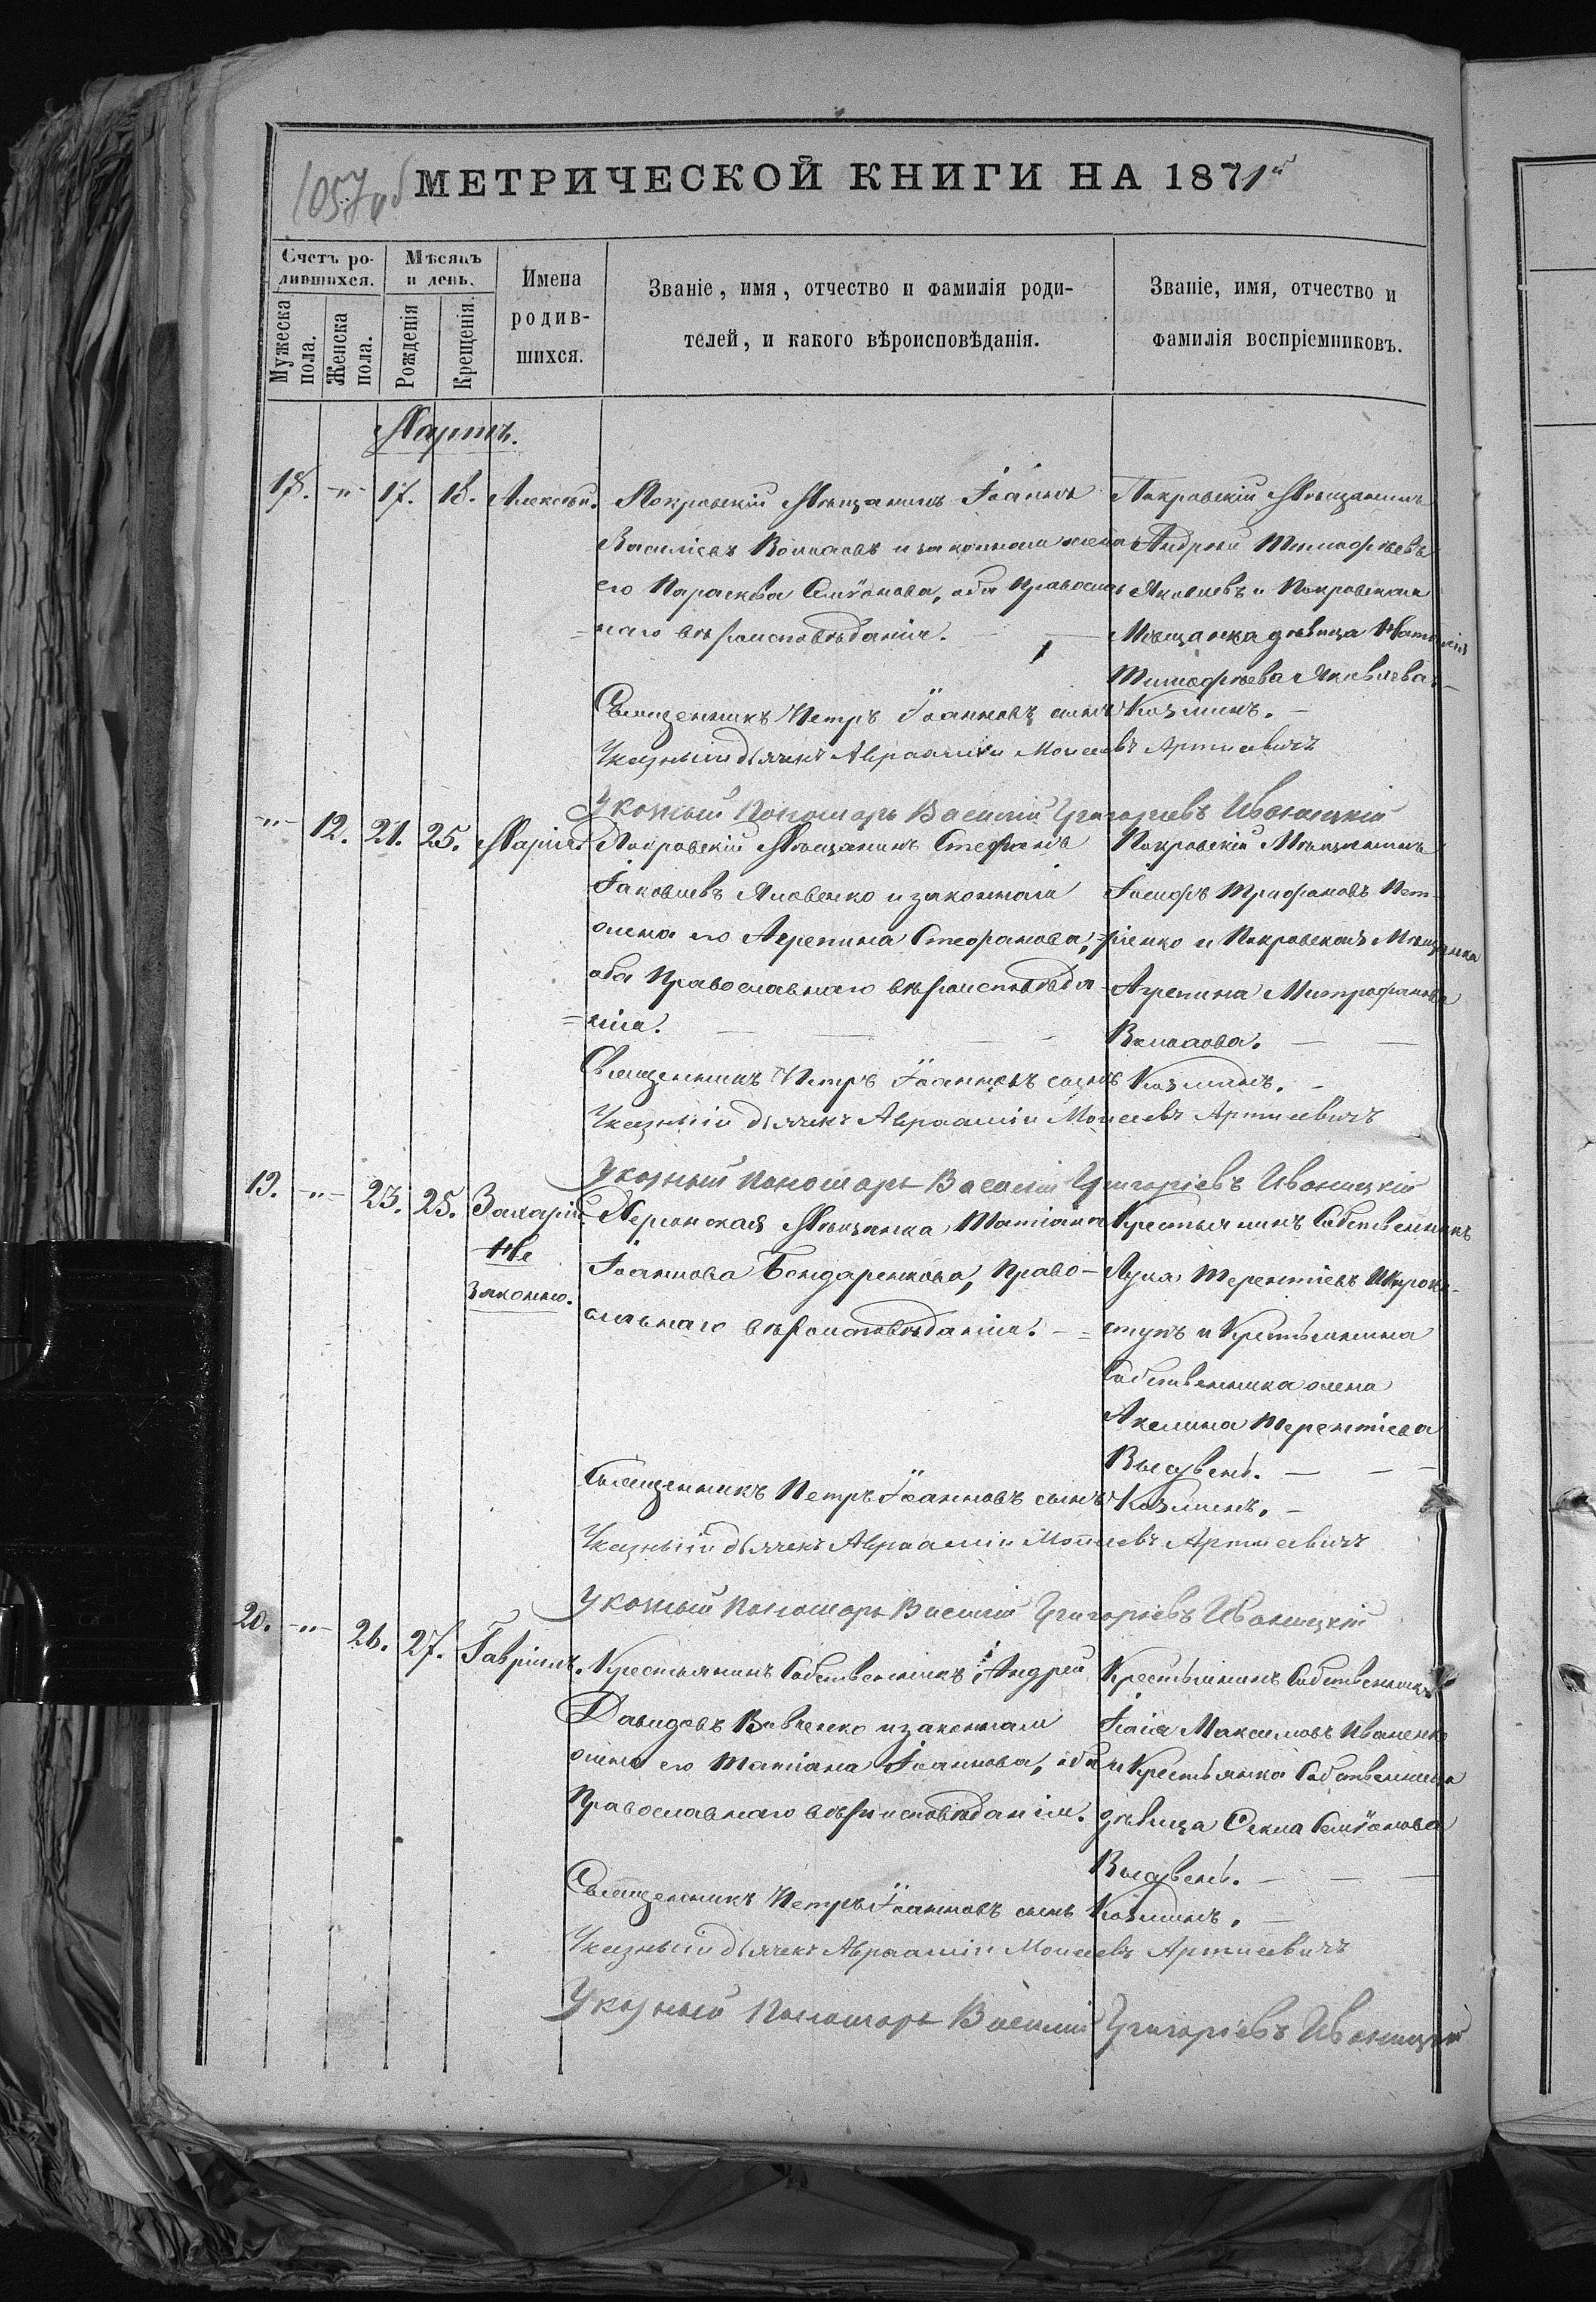 1057 об
МЕТРИЧЕСКОЙ КНИГИ НА 1871й
Счетъ ро-
дившихся.
Мужеска
пола.
Женска
пола.
Мѣсяцъ
и день.
Рожденія
Крещенія.
Имена
родив-
шихся.
Званіе, имя, отчество и фамилія роди-
телей, и какого вѣроисповѣданія.
Званіе, имя, отчество и
фамилія воспріемниковъ.
Мартъ.
18. -"- 17. 18. Алексѣй.
Покровскій Мѣщанинъ Іоаннъ
Василіевъ и законная жена
его Параскева Симеонова, оба Православ
=наго вѣроисповѣданія. —
Покровскій Мѣщанинъ
Андрей Тимофѣевъ
Яковлевъ и Покровская
Мѣщанка дѣвица Наталія
Тимофѣева Яковлева. —
Священникъ Петръ Іоанновъ сынъ Козминъ. —
Указный дьячекъ Авраамій Моисеевъ Артисевичъ
Указный Пономарь Василій Григоріевъ Иваницкій
-"- 12. 21. 25. Марія
Покровскій Мѣщанинъ Стефанъ
Іаковлевъ Яковенко и законная
жена его Агрепина Стефанова,
оба Православнаго вѣроисповѣда
=нія. —
Покровскій Мѣщанинъ
Іосифъ Трифоновъ Пет-
=ренко и Покровская Мѣщанка
Агрепина Митрофанова
—
Священникъ Петръ Іоанновъ сынъ Козминъ. —
Указный дьячекъ Авраамій Моисеевъ Артисевичъ
Указный Пономарь Василій Григоріевъ Иваницкій
19. -"- 23. 25. Захарій
Не
законно.
Херсонская Мѣщанка Татіана
Іоаннова Бондаренкова, Право-
славнаго вѣроисповѣданія. —
Крестьянинъ Собственникъ
Лука Терентіевъ Широко-
=ступъ и Крестьянина
Собственника жена
Акелина Терентіева
—
Священникъ Петръ Іоанновъ сынъ Козминъ. —
Указный дьячекъ Авраамій Моисеевъ Артисевичъ
Указный Пономарь Василій Григоріевъ Иваницкій
20. -"- 26. 27. Гавріилъ.
Крестьянинъ Собственникъ Андрей
Давидовъ Вовченко и законная
жена его Татіана Іоаннова, оба
Православнаго вѣроисповѣданія.
Крестьянинъ Собственникъ
Илія Максимовъ Иваненко
и Крестьянка Собственница
дѣвица Симеонова
—
Священникъ Петръ Іоанновъ сынъ Козминъ. —
Указный дьячекъ Авраамій Моисеевъ Артисевичъ
Указный Пономарь Василій Григоріевъ Иваницкій